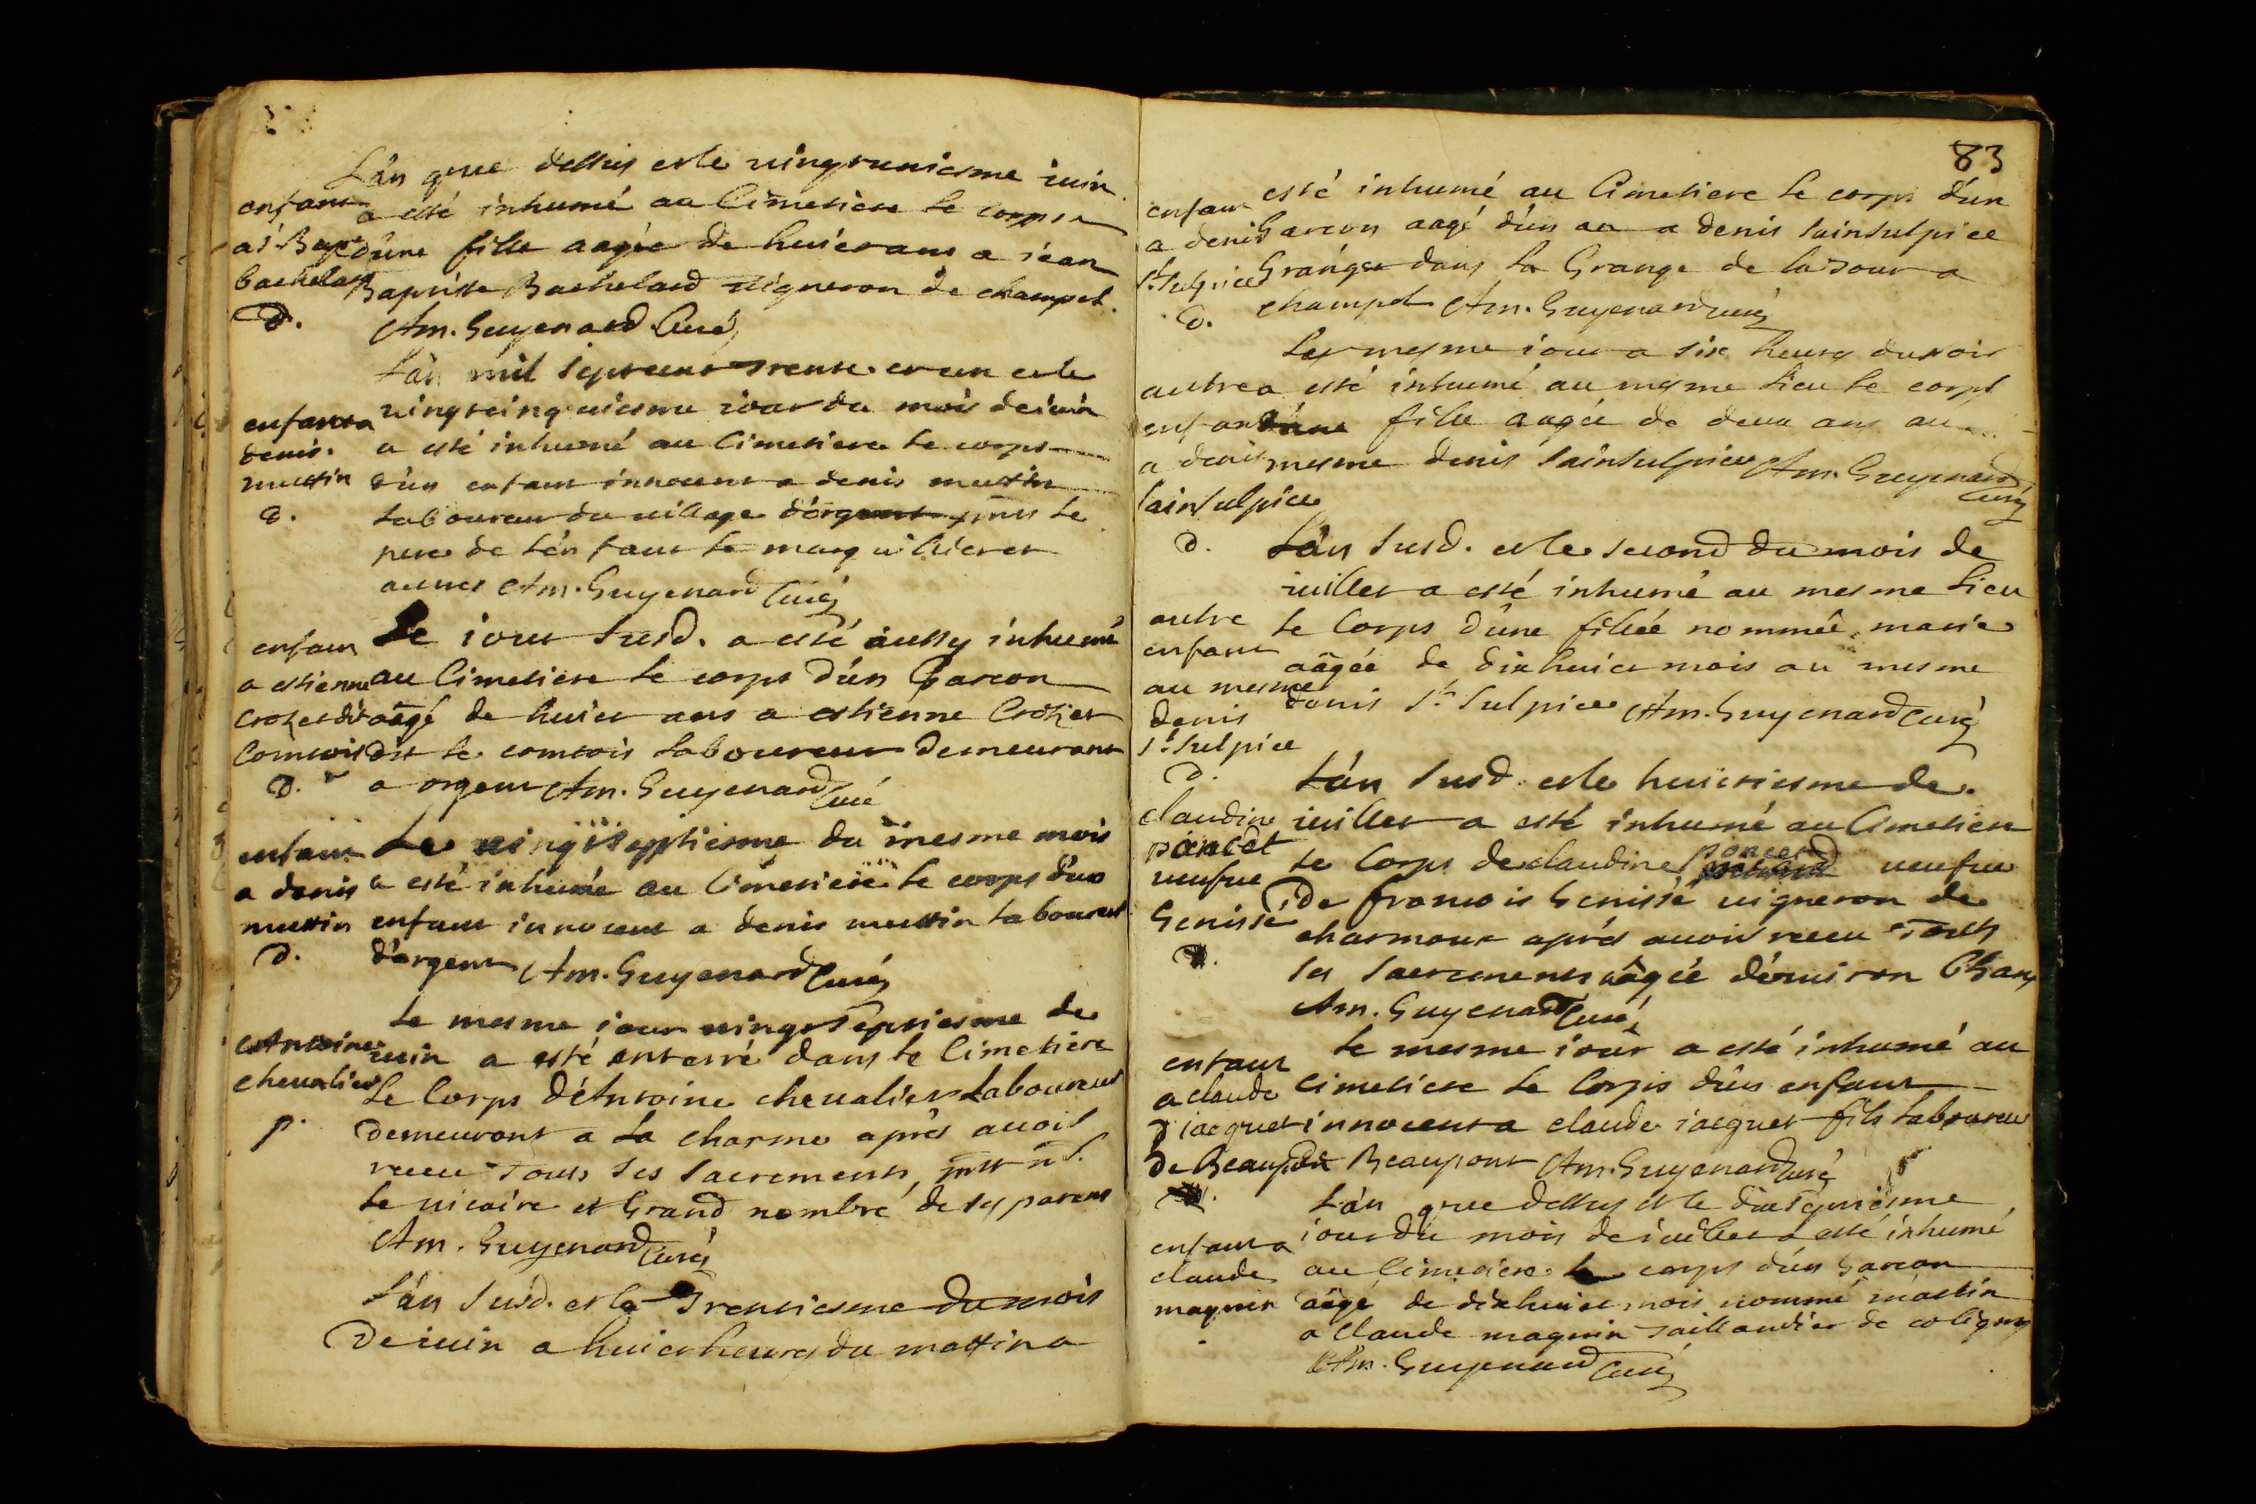 L'an que dessus et le vingt uniesme iuin
enfant a esté inhumé au Cimetiere le corps
a J. Bapt. d'une fille aagée de huict ans a iéan
bachelard Baptiste Bachelard uigneron de champel.
D. Am. Guyenard Curé
L'an mil sept cent trente et un et le
uingt cinquiesme iour du mois de iuin
enfant a
denis a esté inhumé au Cimetiere le corps
muttin d'un enfant innocent a denis muttin
D. laboureur du uillage d'orgent le
pere de l'enfant le marguillier et
autres Am. Guyenard Curé
enfant Le iour susd. a esté aussy inhumé
a estienne au Cimetiere le corps d'un Garcon
Crozet dit aâgé de huict ans a estienne Crozet
Comtois dit le comtois laboureur demeurant
D. a orgent Am. Guyenard Curé
enfant Le uingt septiesme du mesme mois
a denis a esté inhumé au Cimetiere le corps d'un
muttin enfant innocent a denis muttin laboureur
D. d'orgent Am. Guyenard Curé
Le mesme iour uingt septiesme de
Antoine iuin a esté enterré dans le Cimetiere
cheualier Le Corps d'Antoine cheualier Laboureur
p. demeurant a La charme aprés auoir
receu tous ses sacrements,
le uicaire et Grand nombre de ses parens
Am. Guyenard Curé
L'an susd. et le Trentiesme du mois
De iuin a huict heures du mattin a
83
enfant esté inhumé au Cimetiere le corps d'un
a denis Garcon aagé d'un an a denis sainsulpice
St. sulpice Granger dans la Grange de la tour a
D. champel Am. Guyenard curé
Le mesme iour a six heures du soir
autre a esté inhumé au mesme lieu le corps
enfant d'une fille aagée de deux ans au
a denis mesme denis sainsulpice Am. Guyenard
sainsulpice Curé
D. L'an susd. et le second du mois de
iuillet a esté inhumé au mesme lieu
autre le Corps d'une fillée nommée marie
enfant aâgée de dix huict mois au mesme
au mesme denis St. Sulpice Am. Guyenard Curé
denis
St. Sulpice
D. L'an susd. et le huictiesme de
claudine iuillet a esté inhumé au Cimetiere
poncet
poncet le Corps de claudine ueufue
ueufue De francois Genissé uigneron de
Genissé charmoux aprés auoir receu Tous
D. ses sacrements aâgée d'enuiron
Am. Guyenard Curé
Le mesme iour a esté inhumé au
enfant
a claude Cimetiere le Corps d'un enfant
iacquet innocent a claude iacquet fils laboureur
de Beaupont De Beaupont Am. Guyenard Curé
L'an que dessus et le dixseptiesme
enfant a iour du mois de iuillet a esté inhumé
claude au Cimetiere le corps d'un Garcon
magnin aâgé de dix huict mois nommé martin
a Claude magnin taillandier de coligny
Am. Guyenard Curé